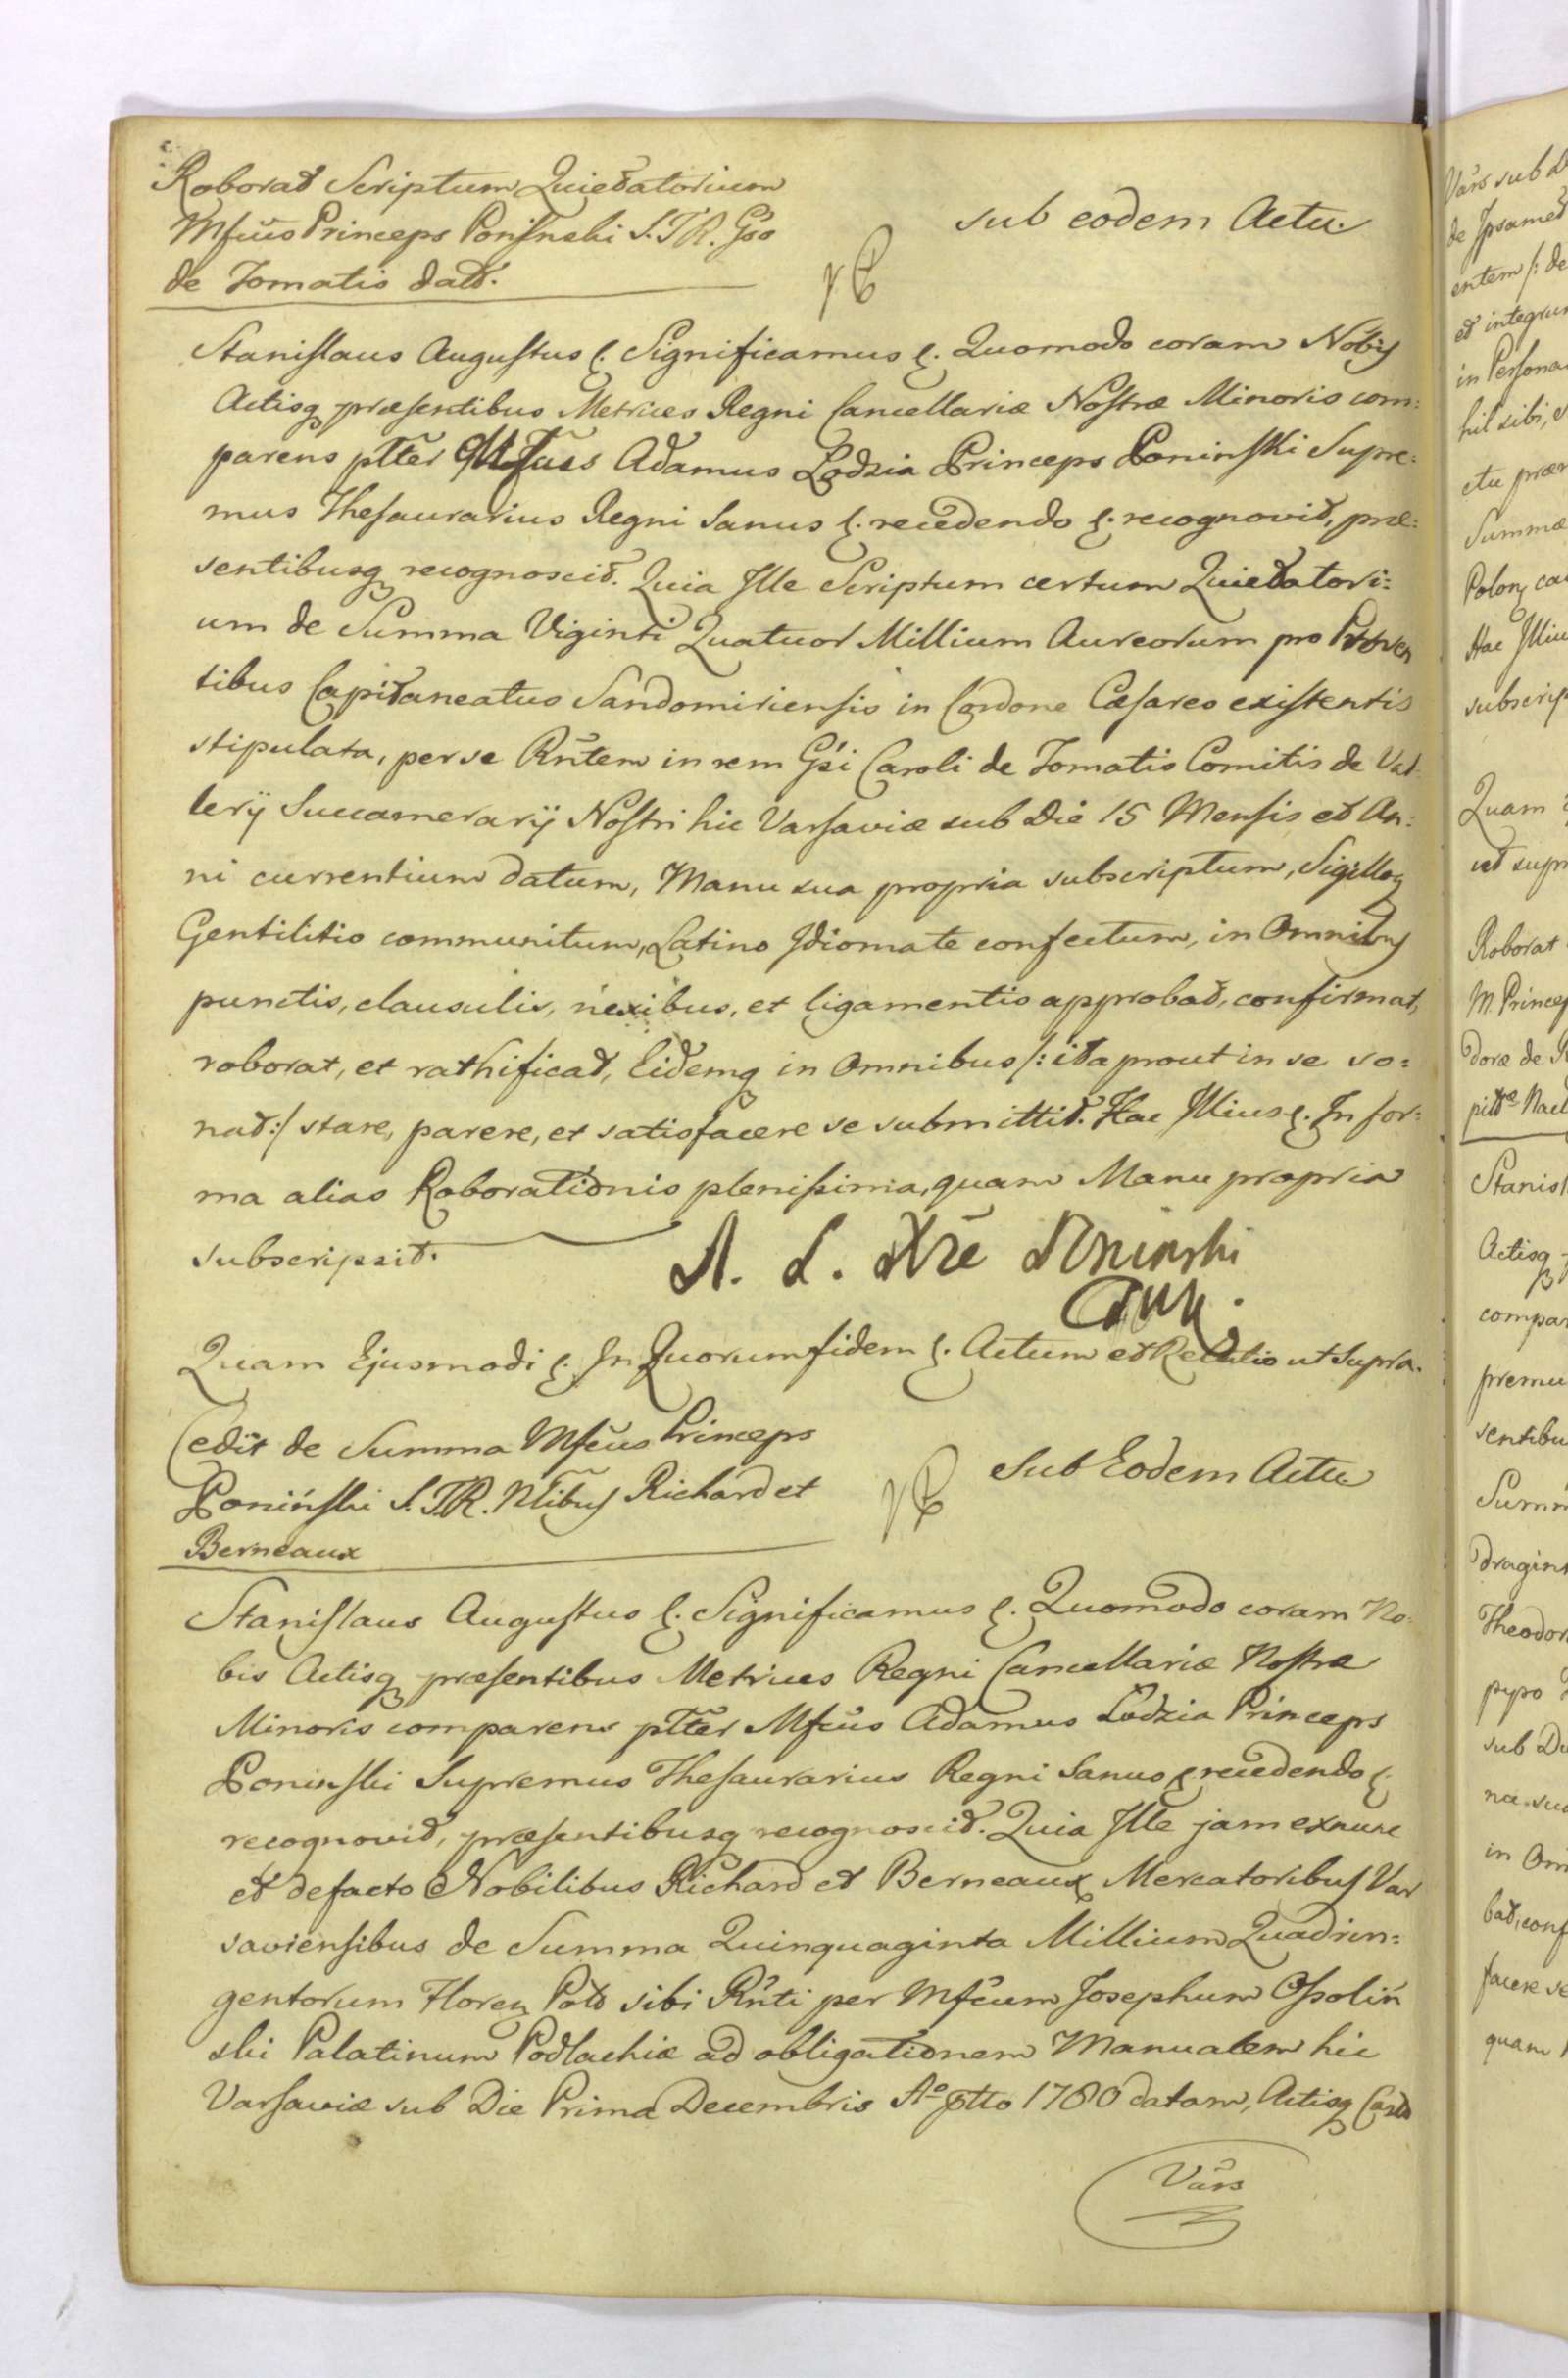 Roborat Scriptum Quietatorium
Mfcus Princeps Poninski S. T. R. Gso
de Tomatis datt.
sub eodem Actu.
Stanislaus Augustus &. Significamus &. Quomodo coram Nobis
Actisq praesentibus Metrices Regni Cancellariæ Nostræ Minoris com:
parens pltter Mfcus Adamus Lodzia Princeps Poninski Supre:
mus Thesaurarius Regni Sanus &. recedendo &. recognovit, præ:
sentibusq recognoscit. Quia Ille Scriptum certum Quietatori:
um de Summa Viginti Quatuor Millium Aureorum pro Proven
tibus Capitaneatus Sandomiriensis in Cordone Cæsareo existentis
stipulata, per se Rntem in rem Gsi Caroli de Tomatis Comitis de Val
lerÿ Succamerarÿ Nostri hic Varsaviæ sub Die 15 Mensis et An:
ni currentium datum, Manu sua propria subscriptum, Sigilloq
Gentilitio communitum, Latino Idiomate confectum, in Omnibus
punctis, clausulis, nexibus, et ligamentis approbat, confirmat,
roborat, et rathificat, Eidemq in Omnibus /: ita prout in se so:
nat :/ stare, parere, et satisfacere se submittit. Hac Illius &. In for:
ma alias Roborationis plenissima, quam Manu propria
subscripsit.
A. L. Poninski
Quam Ejusmodi &. In Quorum fidem &. Actum et Relatio ut Supra.
Cedit de Summa Mfcus Princeps
Poniński S. T. R. Nlibus Richard et
Berneaux
Sub Eodem Actu
Stanislaus Augustus &. Significamus &. Quomodo coram No:
bis Actisq praesentibus Metrices Regni Cancellariæ Nostræ
Minoris comparens pltter Mfcus Adamus Lodzia Princeps
Poninski Supremus Thesaurarius Regni Sanus &. recedendo &.
recognovit, præsentibusq recognoscit. Quia Ille jam exnunc
et defacto Nobilibus Richard et Berneaux Mercatoribus Var
saviensibus de Summa Quinquaginta Millium Quadrin:
gentorum Floren Pol sibi Rnti per Mfcum Josephum Ossoliń
ski Palatinum Podlachiæ ad obligationem Manualem hic
Varsaviæ sub Die Prima Decembris Aº ptto 1780 datam, Actisq Castr
Vars
Vars sub
de Ipsamet
entem /: de
et integrum
in Persona
hil sibi,
Summæ
Polon
Hac Illius
subscrip
Quam
ut supra
Roborat
M. Princep
doræ de
Stanisl
Actisq
compar
premu
sentibu
Summ
dragint
Theodor
sub D
na sua
in Om
bat, conf
facere se
quam